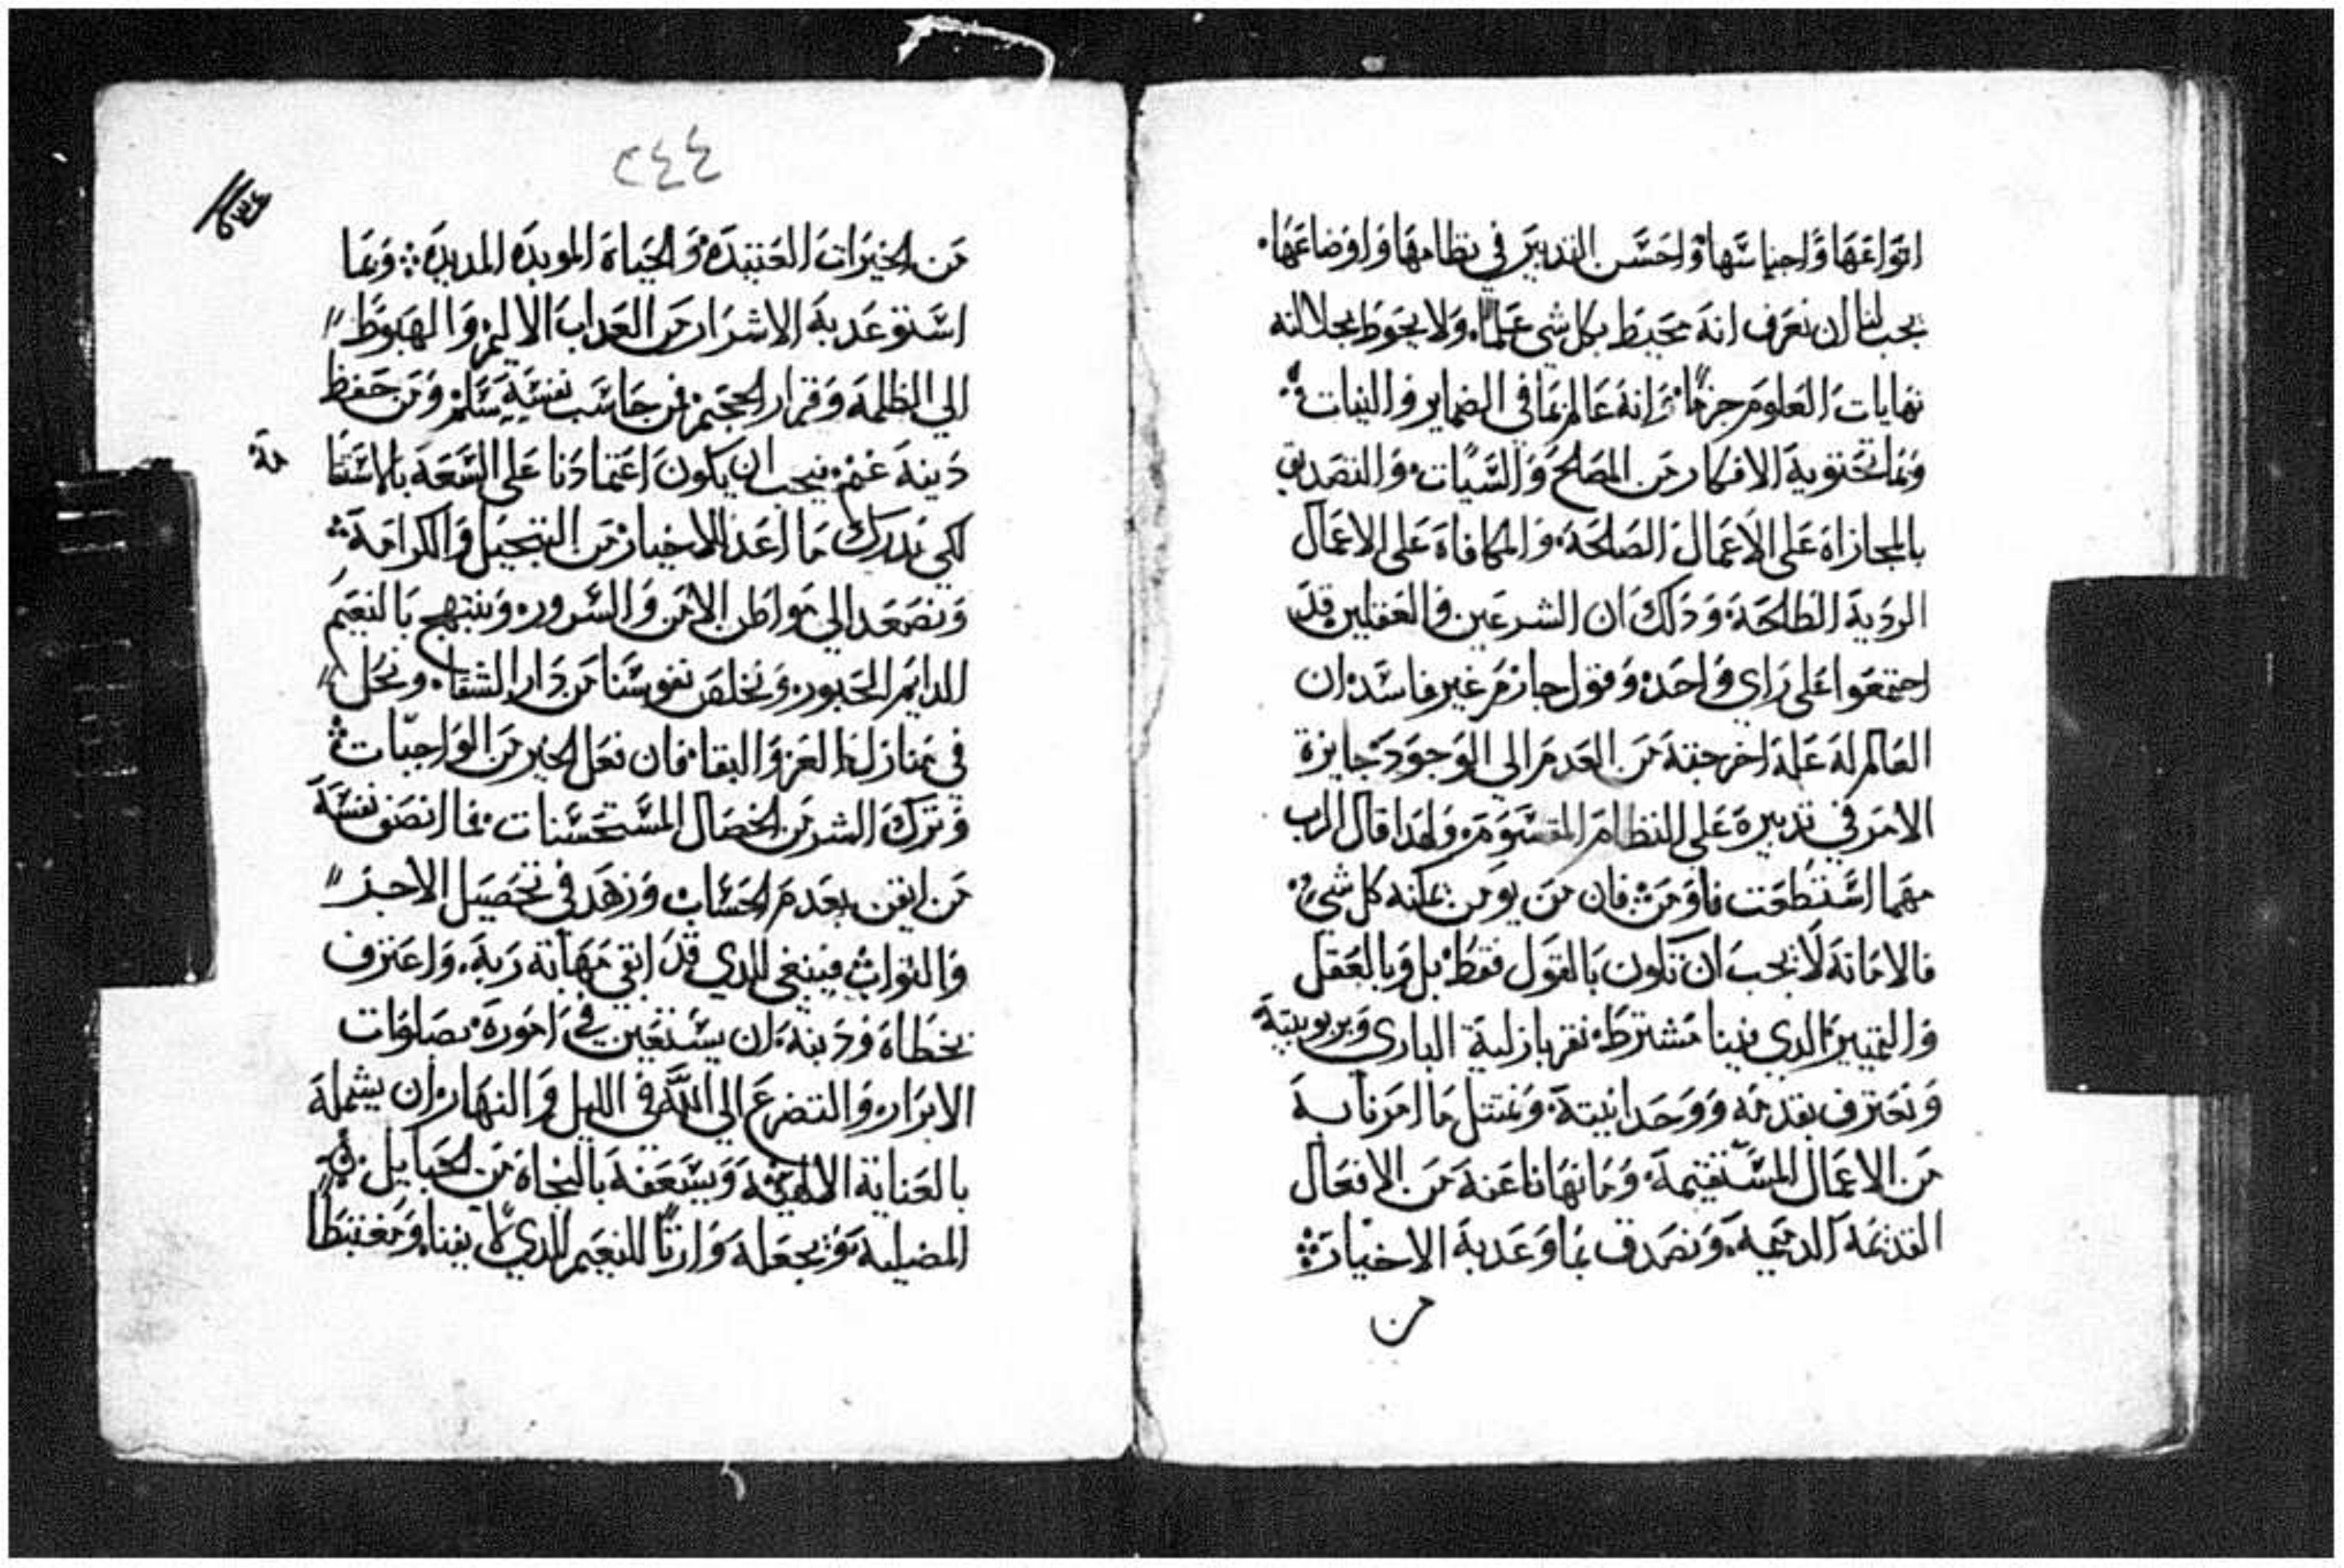 انواعها واجناسها واحسن التدبير في نظامها واوضاعها
يجب لنا ان نعرف انه محيط بكل شي علما. ولا يحوط بجلالته
نهايات العلوم جزما وانه عالم بما في الضماير والنيات
وبما تحتويه الافكار من المصلح والسيات والتصديق
بالمجازاة على الاعمال الصالحة والمكافاة على الاعمال
الردية الطالحة وذلك ان الشرعيين والعقليين قد
اجتمعوا على راي واحد وقول جازم غير فاسد ان
العالم له علة اخرجته من العدم الى الوجود جايزة
الامر في تدبيره على النظام المقسوم ولهذا قال الرب
مهما استطعت فاومن فان من يومن يمكنه كل شي
فالامانة لا يجب ان تكون بالقول فقط بل وبالعقل
والتمييز الذي فينا مشترط نقر بازلية الباري وبربوبيته
ونعترف بقدمه ووحدانيته ونمتثل ما امرنا به
من الاعمال المستقيمة وما نهانا عنه من الافعال
القديمة الدميمة ونصدق بما وعد به الاخيار
من
٢٤٤
من الخيرات العتيدة والحياة الموبدة المديدة وبما
استوعد به الاشرار من العداب الاليم والهبوط
الى الظلمة وقرار الجحيم فمن حاسب نفسه سلم ومن حفظ
دينه غنم فيجب ان يكون اعتمادنا على السعة بالاستقا
مة
لكي ندرك ما اعد للاخيار من التبجيل والكرامة
ونصعد الى مواطن الامن والسرور ونبتهج بالنعيم
الدايم الحبور ونخلص نفوسنا من دار الشقا ونحل
في منازل العز والبقا فان فعل الخير من الواجبات
وترك الشر من الخصال المستحسنات فما انصف نفسه
من ايقن بعدم الحساب وزهد في تحصيل الاجر
والثواب فينبغي للدي قد اتقى مهابة ربه واعترف
بخطاه ودنبه ان يستعين في اموره بصلوات
الابرار والتضرع الى الله في الليل والنهار ان يشمله
بالعناية الالهية ويسعفه بالنجاة من الحبايل
المضيلية ويجعله وارثا للنعيم الدي لا يفنا ومغتبطا